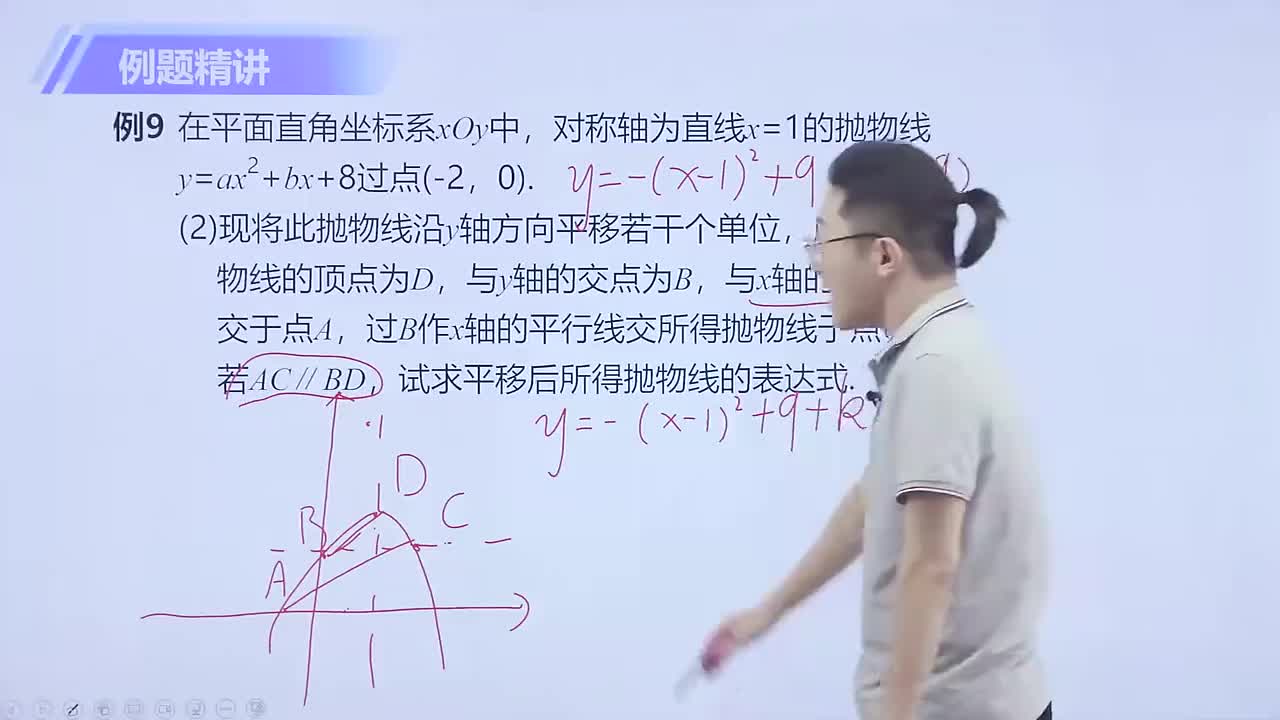 例题精讲
例9 在平面直角坐标系xOy中，对称轴为直线x=1的抛物线
y=ax²+bx+8过点(-2，0). y=-(x-1)²+9
(2)现将此抛物线沿y轴方向平移若干个单位，
物线的顶点为D，与y轴的交点为B，与x轴的
交于点A，过B作x轴的平行线交所得抛物线于点
若AC∥BD，试求平移后所得抛物线的表达式.
y=-(x-1)²+9+k
D
B
C
A